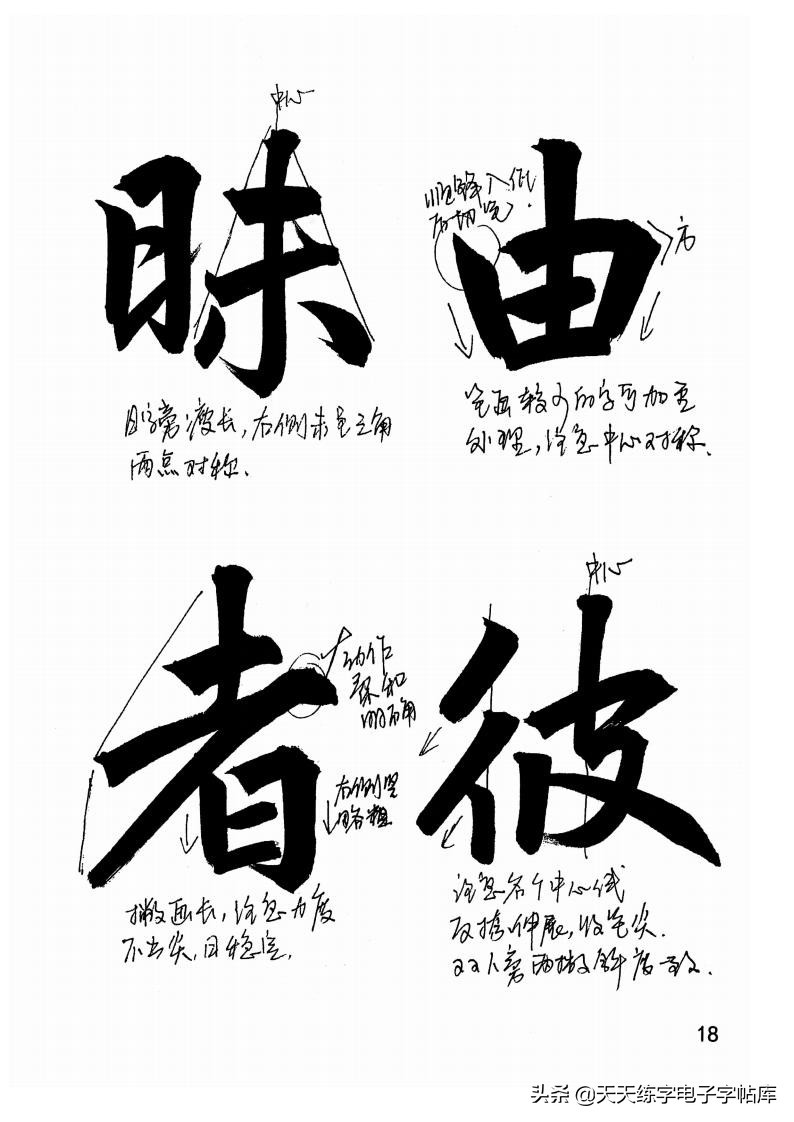 中心
昧
日字旁瘦长,右侧未呈三角
两点对称.
顺锋入纸
后切笔.
方
由
笔画较少的字可加重
处理,注意中心对称.
者
动作
柔和
明确
右侧竖
略粗
撇画长,注意力度
不出尖,日稳定.
中心
彼
注意各个中心线
反捺伸展,收笔尖.
双人旁两撇斜度一致.
18
头条 @天天练字电子字帖库